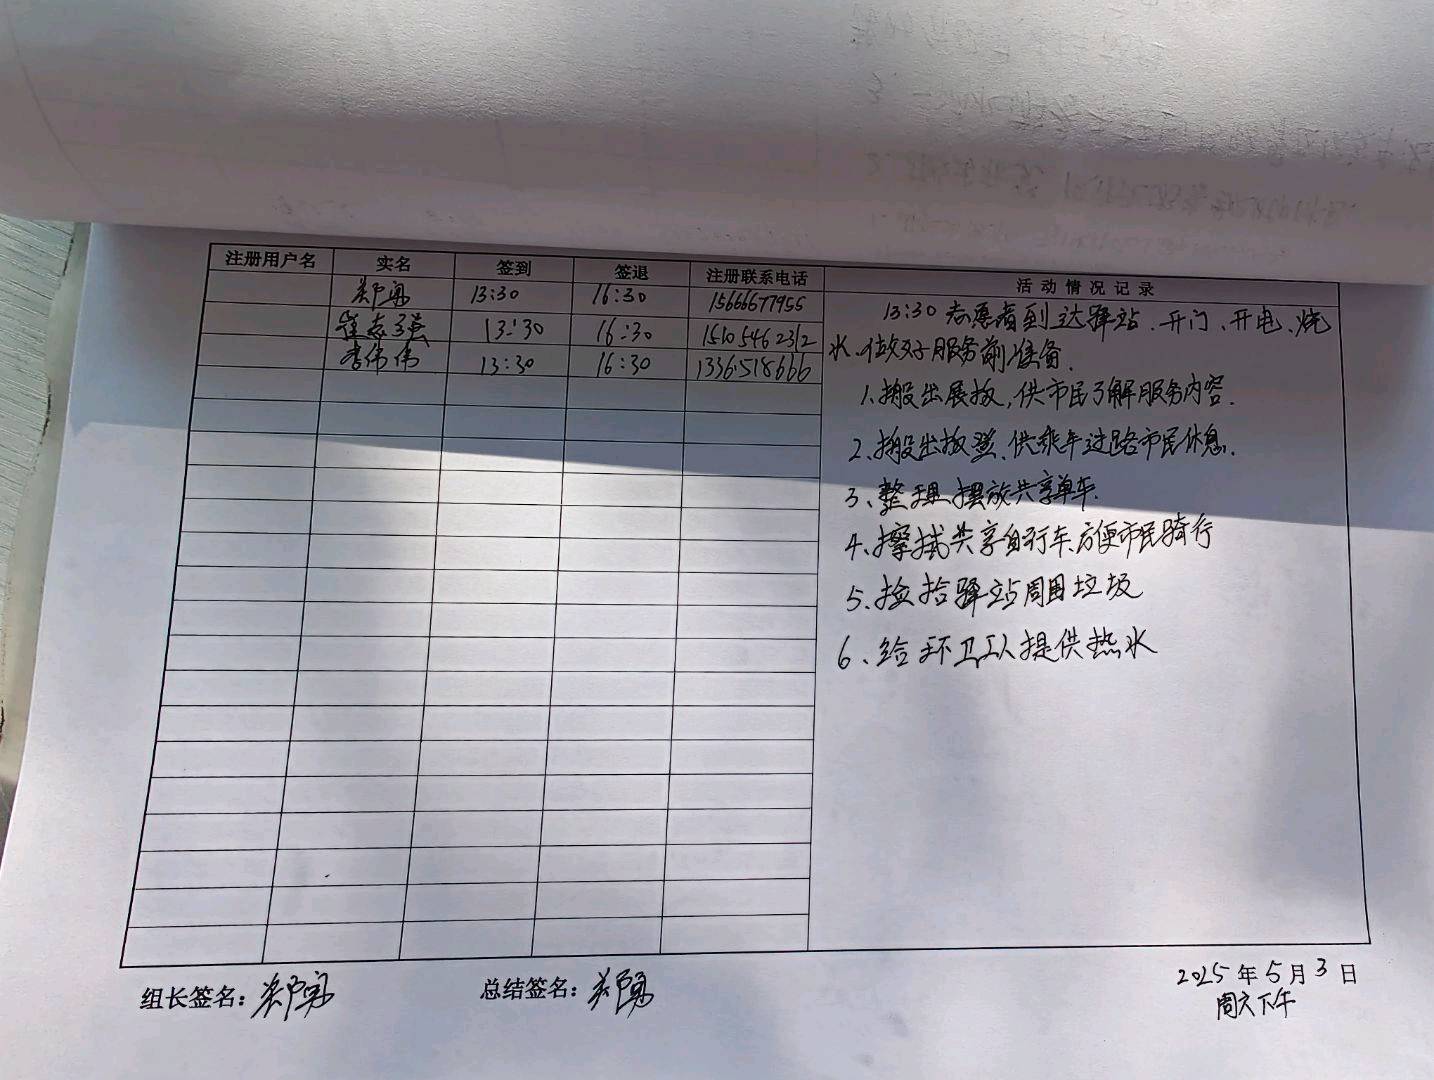 注册用户名 实名 签到 签退 注册联系电话 活动情况记录
郑勇 13:30 16:30 15666677955
崔志强 13:30 16:30 15105462312
李伟伟 13:30 16:30 13365186666
13:30 志愿者到达驿站、开门、开电、烧
水、做好服务前准备.
1、搬出展板,供市民了解服务内容.
2、搬出板凳、供乘车过路市民休息.
3、整理摆放共享单车.
4、擦拭共享自行车、方便市民骑行
5、捡拾驿站周围垃圾
6、给环卫工人提供热水
组长签名: 郑勇 总结签名: 郑勇 2025年5月3日
周六下午